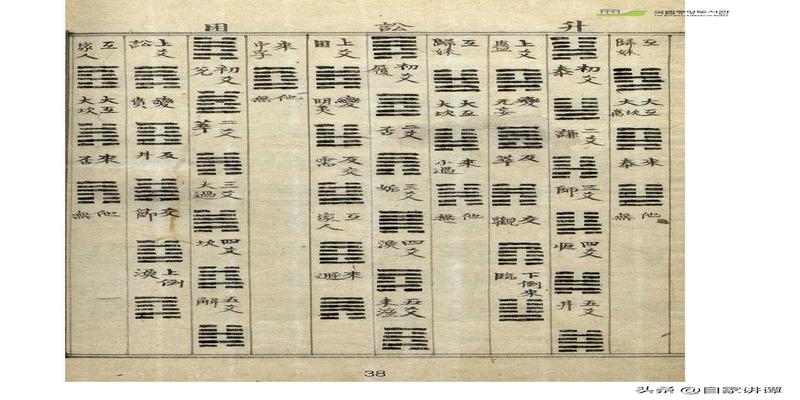 국립중앙도서관
THE NATIONAL LIBRARY OF KOREA
互 歸妹
大互
來 泰
他 無
升
初爻 泰
二爻 謙
三爻 師
四爻 恒
五爻 井
上爻 蠱
變 无妄
反 萃
交 觀
下倒來 臨
互 歸妹
大互 大坎
來 小過
他 無
訟
初爻 履
二爻 否
三爻 姤
四爻 渙
五爻 未濟
上爻 困
變 明夷
反交 需
互 家人
來 遯
來 中孚
他 無
困
初爻 兌
二爻 萃
三爻 大過
四爻 坎
五爻 解
上爻 訟
變 賁
反 井
交 節
上倒 渙
互 家人
大互 大坎
來 否
他 無
38
头条 @自家讲谭